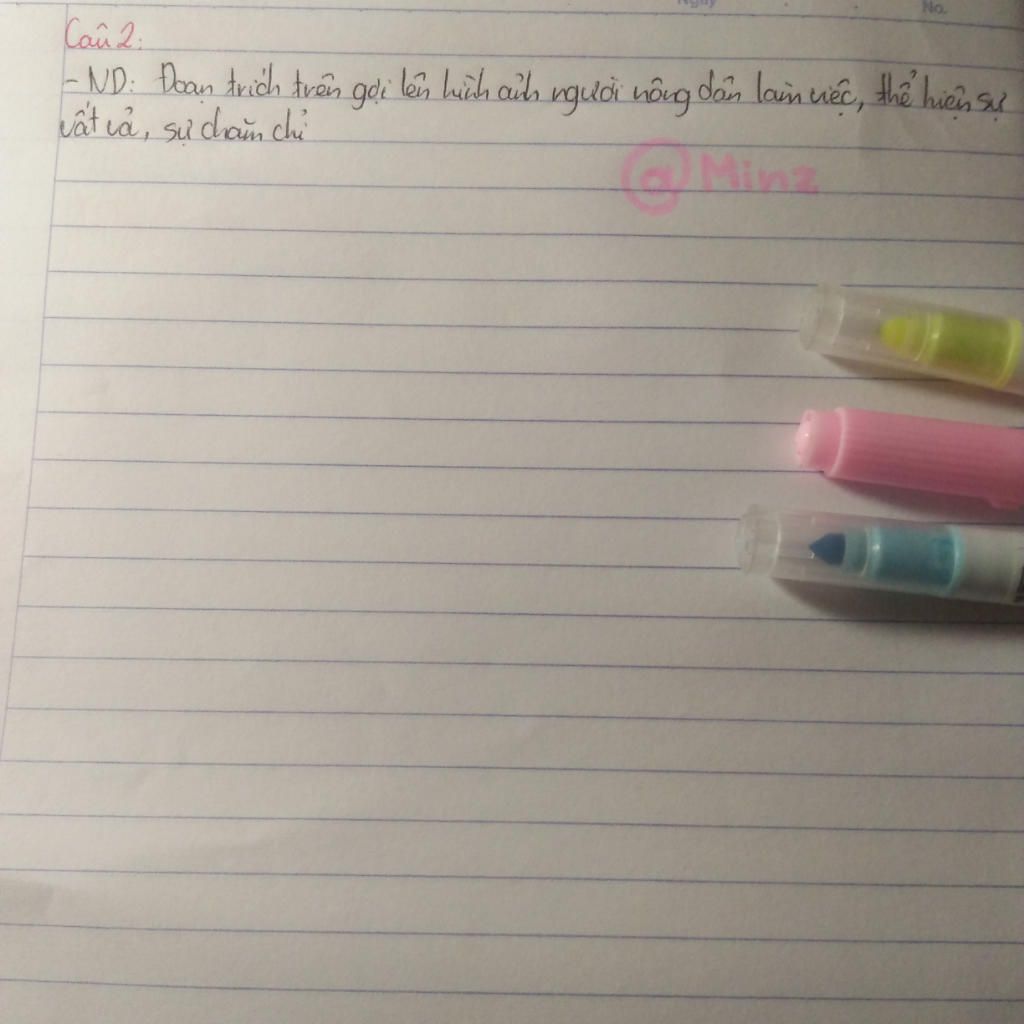 Ngày
No.
Câu 2:
- ND: Đoạn trích trên gợi lên hình ảnh người nông dân làm việc, thể hiện sự
vất vả, sự chăm chỉ
@Minz